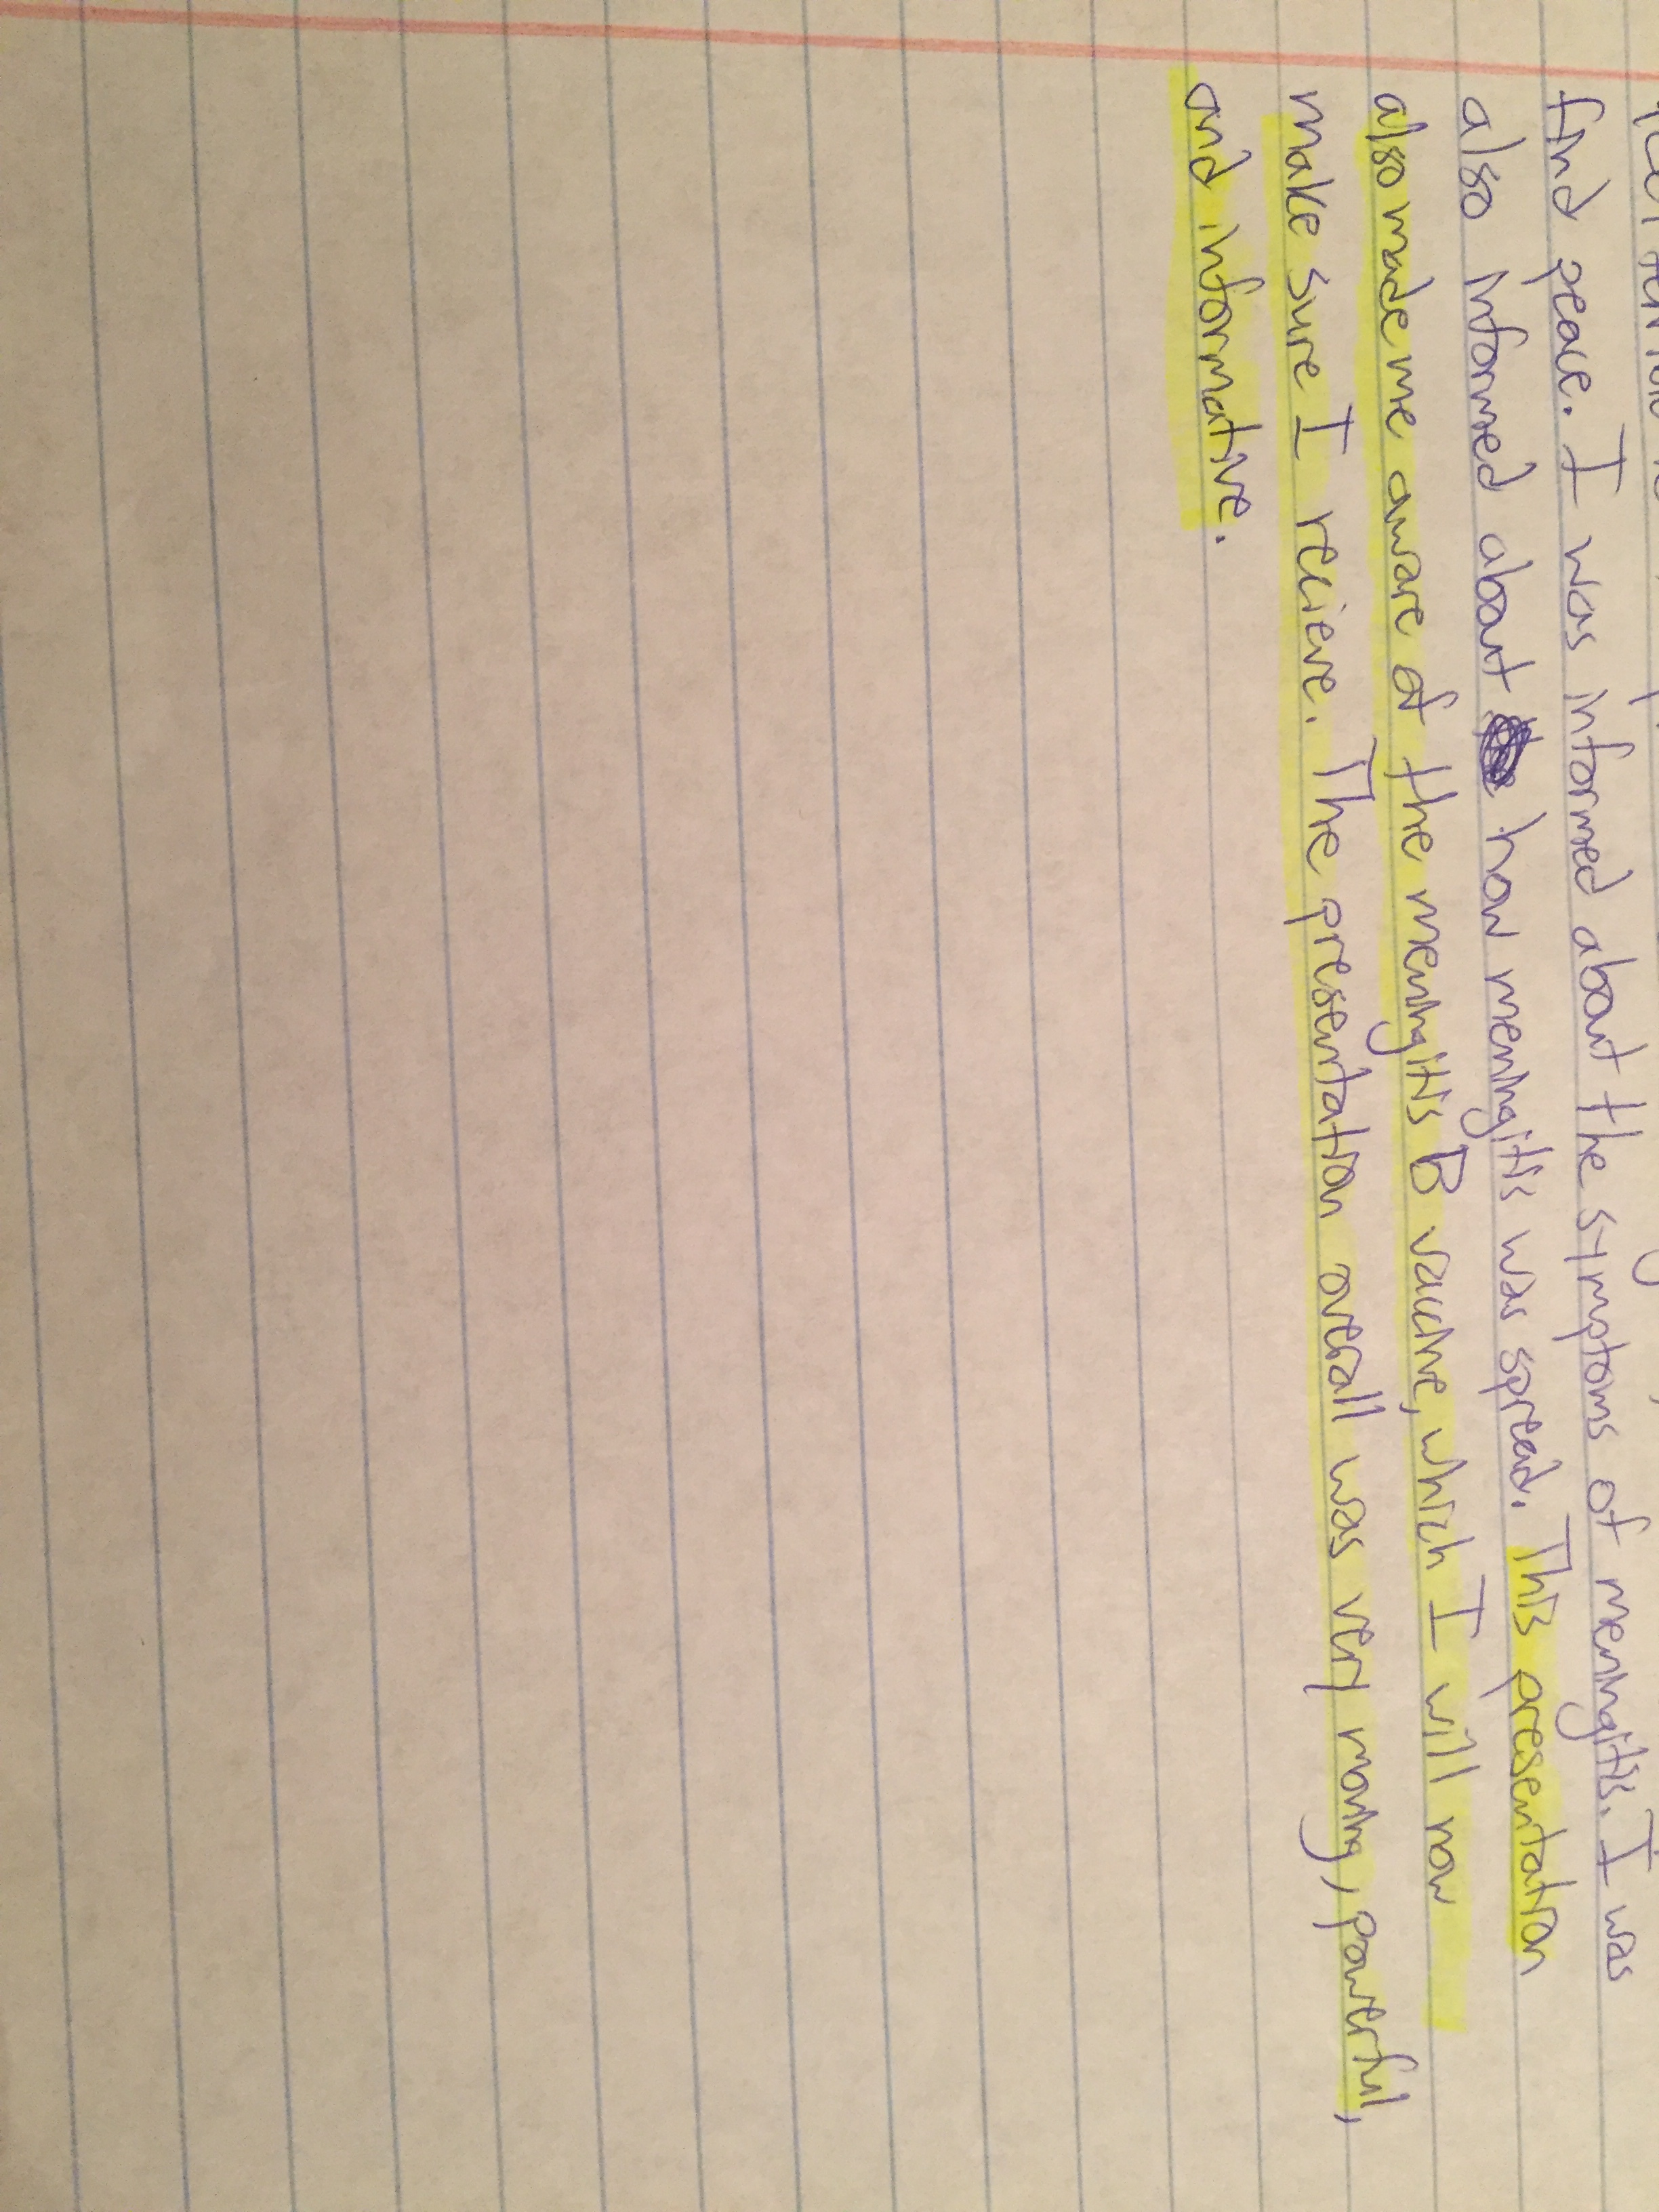 find peace. I was informed about the symptoms of meningitis. I was
also informed about how meningitis was spread. This presentation
also made me aware of the meningitis B vaccine, which I will now
make sure I recieve. The presentation overall was very moving, powerful,
and informative.